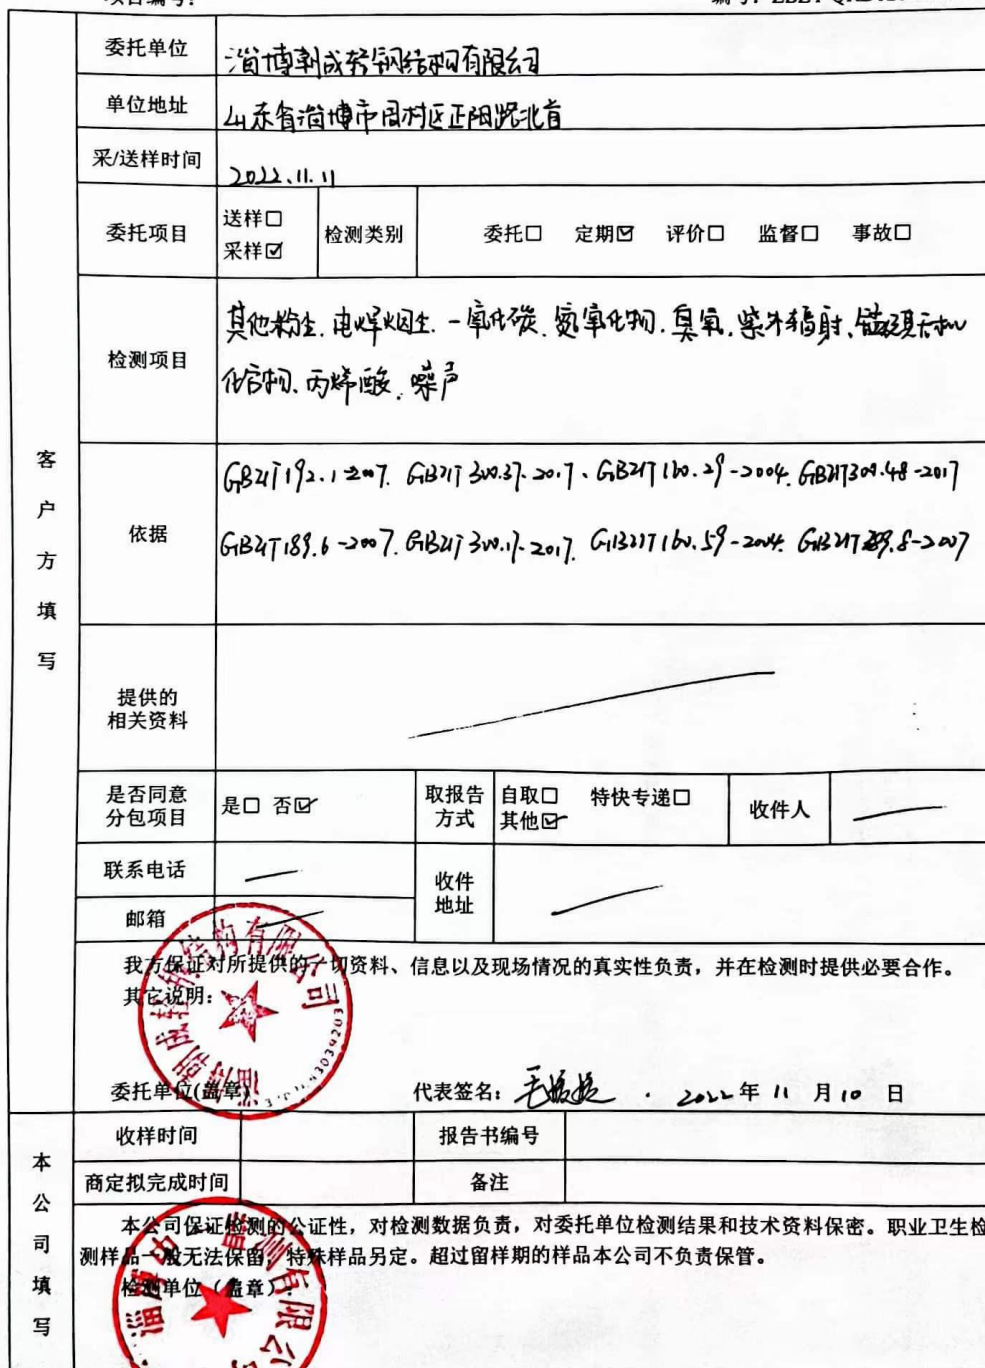 委托单位 淄博朝成轻钢结构有限公司
单位地址 山东省淄博市周村区正阳路北首
采/送样时间 2022.11.11
委托项目 送样□ 采样☑ 检测类别 委托□ 定期☑ 评价□ 监督□ 事故□
检测项目
其他粉尘、电焊烟尘、一氧化碳、氮氧化物、臭氧、紫外辐射、锰及其无机
化合物、丙烯酸、噪声
客户方填写
依据
GBZ/T192.1-2007、GBZ/T300.37-2017、GBZ/T160.29-2004、GBZ/T300.48-2017
GBZ/T189.6-2007、GBZ/T300.17-2017、GBZ/T160.59-2004、GBZ/T189.8-2007
提供的
相关资料
是否同意
分包项目
是□ 否☑
取报告
方式
自取□ 特快专递□
其他☑
收件人
联系电话
收件
地址
邮箱
我方保证对所提供的一切资料、信息以及现场情况的真实性负责，并在检测时提供必要合作。
其它说明：
淄博朝成轻钢结构有限公司
委托单位(盖章) 代表签名： 2022年11月10日
收样时间 报告书编号
商定拟完成时间 备注
本公司填写
本公司保证检测的公证性，对检测数据负责，对委托单位检测结果和技术资料保密。职业卫生检
测样品一般无法保留，特殊样品另定。超过留样期的样品本公司不负责保管。
检测单位（盖章）：